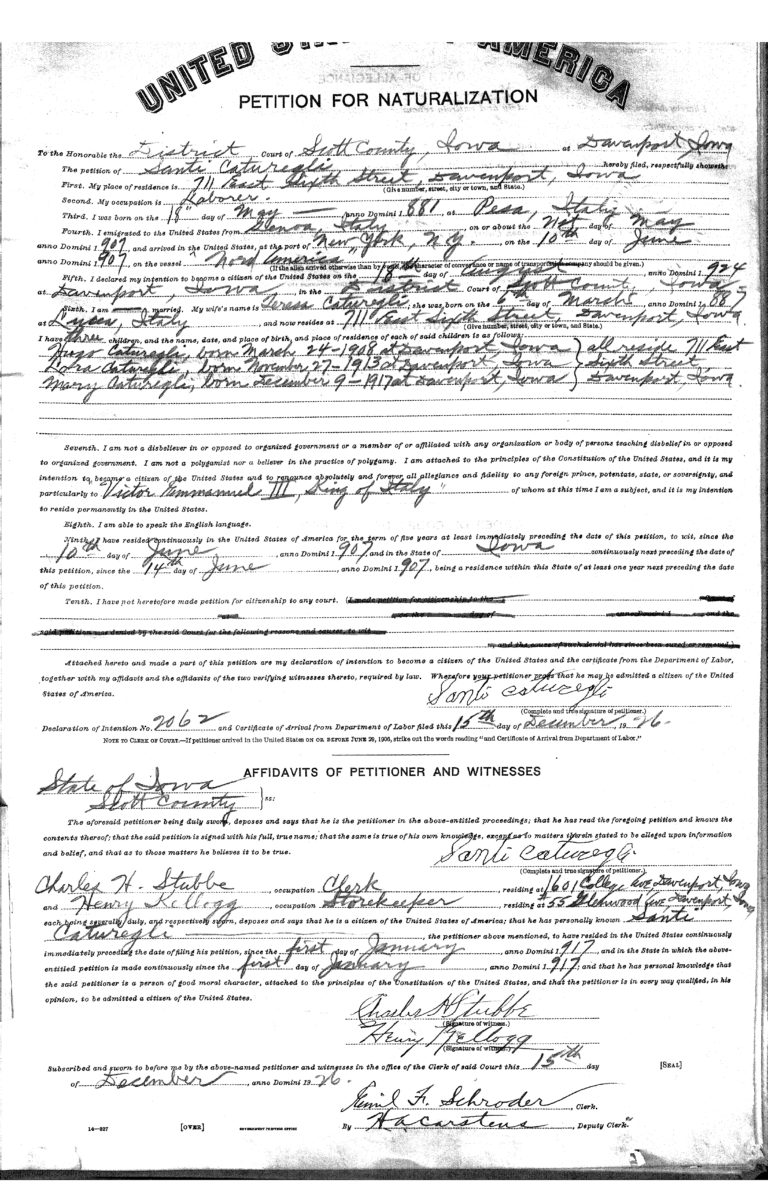 UNITED STATES OF AMERICA
PETITION FOR NATURALIZATION
To the Honorable the District Court of Scott County, Iowa at Davenport Iowa
The petition of Santi Caturegli hereby filed, respectfully showeth:
First. My place of residence is 711 East Sixth Street, Davenport, Iowa
(Give number, street, city or town, and State.)
Second. My occupation is Laborer.
Third. I was born on the 18" day of May anno Domini 1881 at Pesa, Italy
Fourth. I emigrated to the United States from Genoa, Italy on or about the day of May
anno Domini 1907, and arrived in the United States, at the port of New York, N.Y. on the 10th day of June
anno Domini 1907, on the vessel "Nord America"
(If the alien arrived otherwise than by vessel, the character of conveyance or name of transportation company should be given.)
Fifth. I declared my intention to become a citizen of the United States on the day of August anno Domini 1924
at Davenport, Iowa in the District Court of Scott County, Iowa
Sixth. I am married. My wife's name is Teresa Caturegli; she was born on the 6th day of March anno Domini 1887
at Italy, and now resides at 711 East Sixth Street, Davenport, Iowa.
(Give number, street, city or town, and State.)
I have three children, and the name, date, and place of birth, and place of residence of each of said children is as follows:
Hugo Caturegli, born March 24-1908 at Davenport, Iowa } all reside 711 East
Dora Caturegli, born November 27-1913 at Davenport, Iowa } Sixth Street,
Mary Caturegli, born December 9-1917 at Davenport, Iowa } Davenport, Iowa.
Seventh. I am not a disbeliever in or opposed to organized government or a member of or affiliated with any organization or body of persons teaching disbelief in or opposed
to organized government. I am not a polygamist nor a believer in the practice of polygamy. I am attached to the principles of the Constitution of the United States, and it is my
intention to become a citizen of the United States and to renounce absolutely and forever all allegiance and fidelity to any foreign prince, potentate, state, or sovereignty, and
particularly to Victor Emmanuel III, King of Italy" of whom at this time I am a subject, and it is my intention
to reside permanently in the United States.
Eighth. I am able to speak the English language.
Ninth. I have resided continuously in the United States of America for the term of five years at least immediately preceding the date of this petition, to wit, since the
10th day of June, anno Domini 1907, and in the State of Iowa continuously next preceding the date of
this petition, since the 14th day of June, anno Domini 1907, being a residence within this State of at least one year next preceding the date
of this petition.
Tenth. I have not heretofore made petition for citizenship to any court. (I made petition for citizenship to the
said petition was denied by the said Court for the following reasons and causes, to wit
and the cause of such denial has since been cured or removed.)
Attached hereto and made a part of this petition are my declaration of intention to become a citizen of the United States and the certificate from the Department of Labor,
together with my affidavit and the affidavits of the two verifying witnesses thereto, required by law. Wherefore your petitioner prays that he may be admitted a citizen of the United
States of America.
Santi Caturegli
(Complete and true signature of petitioner.)
Declaration of Intention No. 2062 and Certificate of Arrival from Department of Labor filed this 15th day of December, 1926.
NOTE TO CLERK OF COURT.—If petitioner arrived in the United States ON OR BEFORE JUNE 29, 1906, strike out the words reading "and Certificate of Arrival from Department of Labor."
AFFIDAVITS OF PETITIONER AND WITNESSES
State of Iowa
Scott County } ss:
The aforesaid petitioner being duly sworn, deposes and says that he is the petitioner in the above-entitled proceedings; that he has read the foregoing petition and knows the
contents thereof; that the said petition is signed with his full, true name; that the same is true of his own knowledge, except as to matters therein stated to be alleged upon information
and belief, and that as to those matters he believes it to be true.
Santi Caturegli.
(Complete and true signature of petitioner.)
Charles H. Stubbe, occupation Clerk, residing at 1601 College Ave Davenport, Iowa
and Henry Kellogg, occupation Storekeeper, residing at 55 Glenwood Ave Davenport Iowa
each being severally, duly, and respectively sworn, deposes and says that he is a citizen of the United States of America; that he has personally known Santi
Caturegli the petitioner above mentioned, to have resided in the United States continuously
immediately preceding the date of filing his petition, since the first day of January, anno Domini 1917, and in the State in which the above-
entitled petition is made continuously since the first day of January, anno Domini 1917; and that he has personal knowledge that
the said petitioner is a person of good moral character, attached to the principles of the Constitution of the United States, and that the petitioner is in every way qualified, in his
opinion, to be admitted a citizen of the United States.
Charles H Stubbe
(Signature of witness.)
Henry Kellogg
(Signature of witness.)
Subscribed and sworn to before me by the above-named petitioner and witnesses in the office of the Clerk of said Court this 15th day
of December, anno Domini 1926.
[SEAL]
Emil F. Schroder, Clerk.
By H A Carstens, Deputy Clerk.
14—227 [OVER] GOVERNMENT PRINTING OFFICE